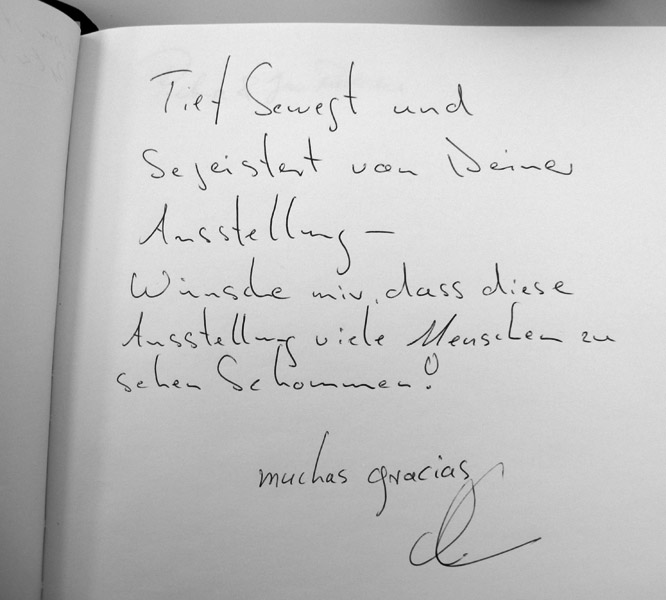 Tief bewegt und
begeistert von Deiner
Ausstellung –
Wünsche mir, dass diese
Ausstellung viele Menschen zu
sehen bekommen!
muchas gracias